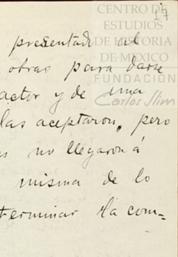 CENTRO DE
ESTUDIOS
DE HISTORIA
DE MÉXICO
FUNDACIÓN
Carlos Slim
17
presentado al
otras para darse
actor y de una
las aceptaron, pero
no llegaron á
misma de lo
terminar la com-